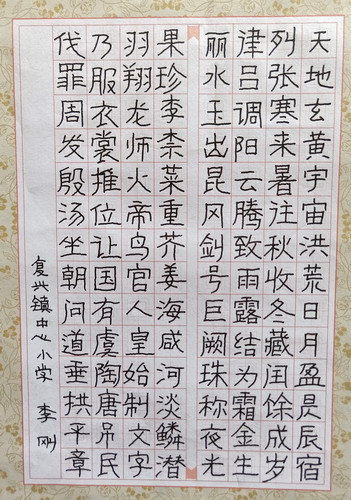 天地玄黄宇宙洪荒日月盈昃辰宿
列张寒来暑往秋收冬藏闰馀成岁
津吕调阳云腾致雨露结为霜金生
丽水玉出昆冈剑号巨阙珠称夜光
果珍李柰菜重芥姜海咸河淡鳞潜
羽翔龙师火帝鸟官人皇始制文字
乃服衣裳推位让国有虞陶唐吊民
伐罪周发殷汤坐朝问道垂拱平章
复兴镇中心小学 李刚